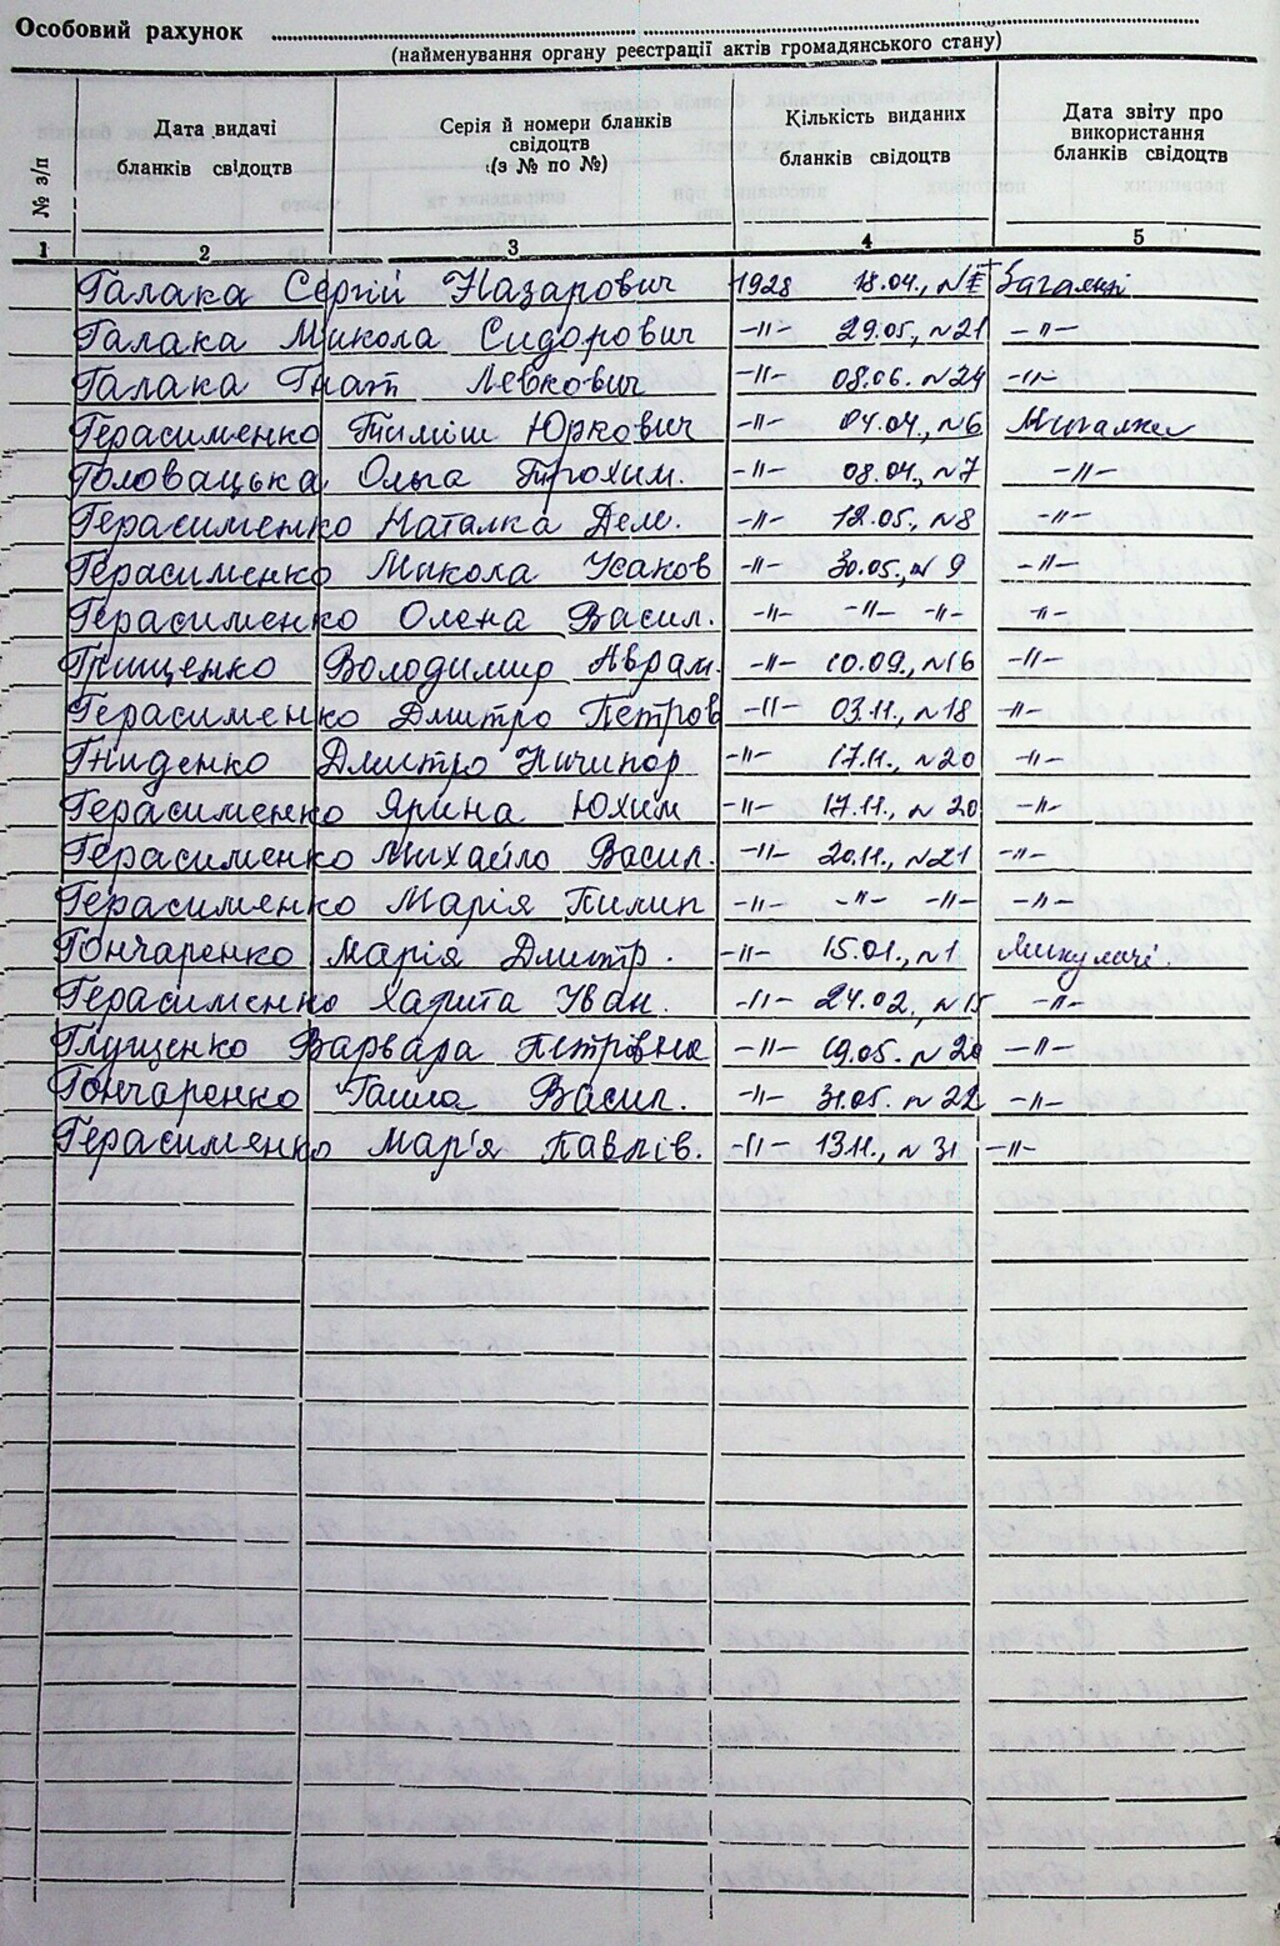 Особовий рахунок
(найменування органу реєстрації актів громадянського стану)
№ з/п
Дата видачі
бланків свідоцтв
Серія й номери бланків
свідоцтв
(з № по №)
Кількість виданих
бланків свідоцтв
Дата звіту про
використання
бланків свідоцтв
1 2 3 4 5
Галака Сергій Назарович 1928 18.04., N
Галака Микола Сидорович -"- 29.05., N21 -"-
Галака Гнат Левкович -"- 08.06. N24 -"-
Герасименко Тиміш Юркович -"- 04.04., N6
Головацька Ольга Трохим. -"- 08.04., N7 -"-
Герасименко Наталка Дем. -"- 12.05., N8 -"-
Герасименко Микола Усаков -"- 30.05., N 9 -"-
Герасименко Олена Васил. -"- -"- -"- -"-
Грищенко Володимир Аврам. -"- 10.09., N16 -"-
Герасименко Дмитро Петров -"- 03.11., N18 -"-
Гниденко Дмитро Ничипор -"- 17.11., N20 -"-
Герасименко Ярина Юхим -"- 17.11., N 20 -"-
Герасименко Михайло Васил. -"- 20.11., N21 -"-
Герасименко Марія Пилип -"- -"- -"- -"-
Гончаренко Марія Дмитр. -"- 15.01., N1 Микулачі.
Герасименко Харита Іван. -"- 24.02., N15 -"-
Глущенко Варвара Петрівна -"- 19.05. N20 -"-
Гончаренко Ганна Васил. -"- 31.05. N 22 -"-
Герасименко Мар'я Павлів. -"- 13.11., N 31 -"-